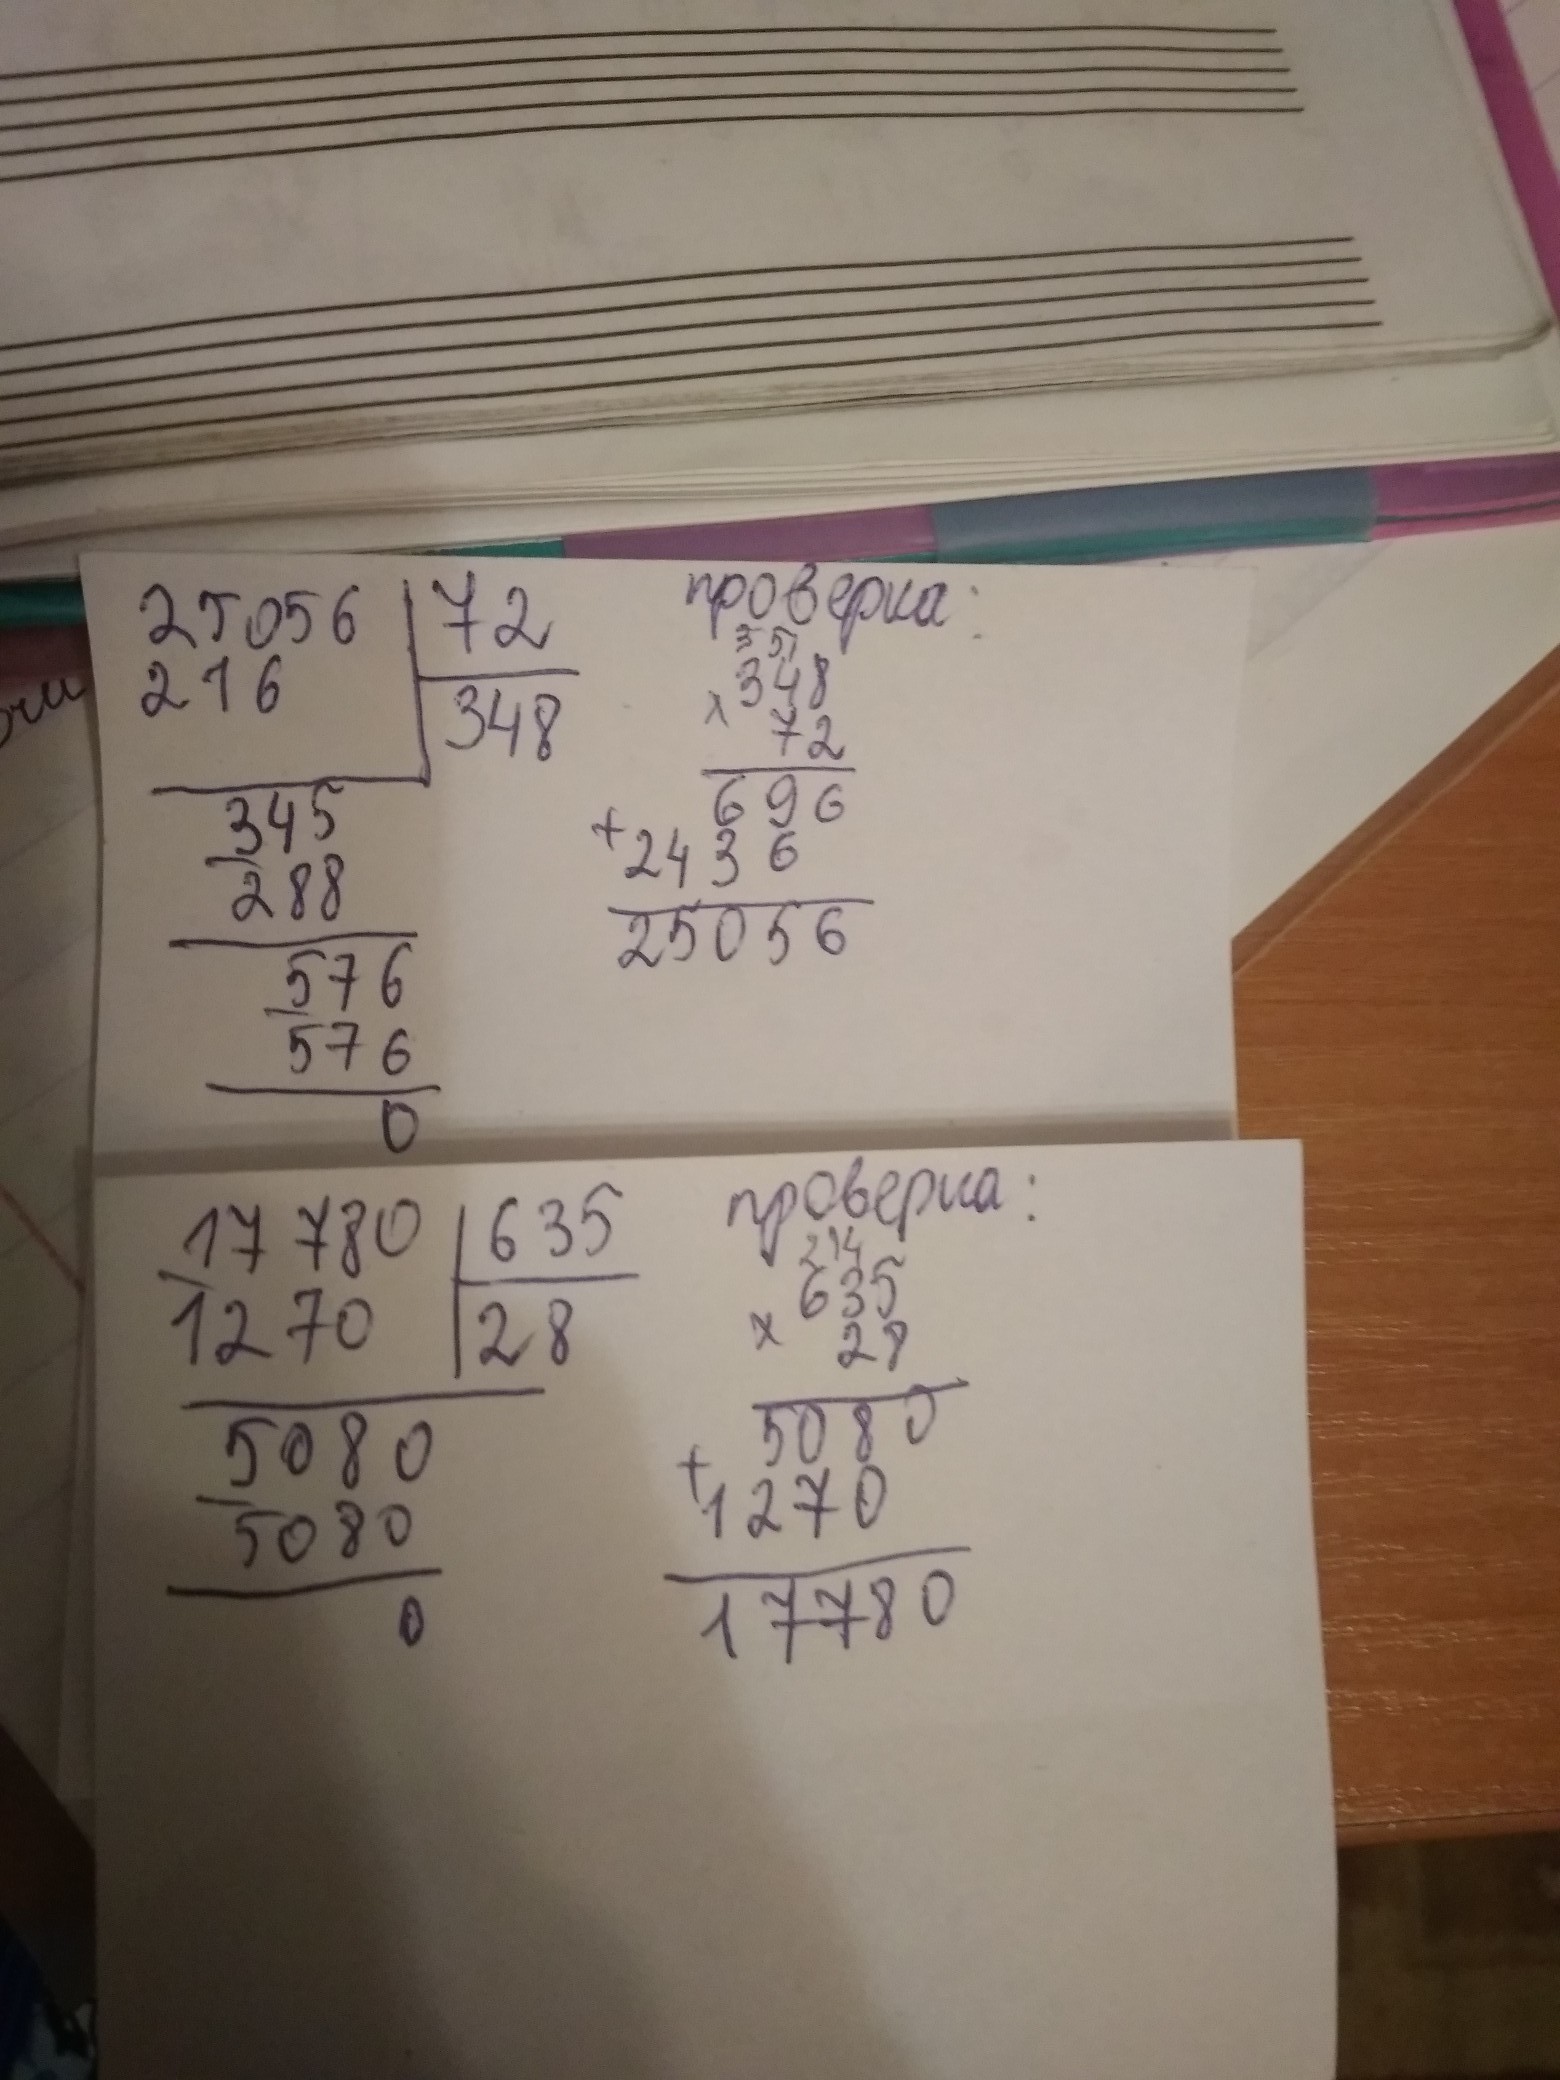 25056 72
216 348
345
288
576
576
0
проверка:
3 51
348
× 72
696
+
2436
25056
17780 635
1270 28
5080
5080
0
проверка:
2 14
635
× 28
5080
+
1270
17780